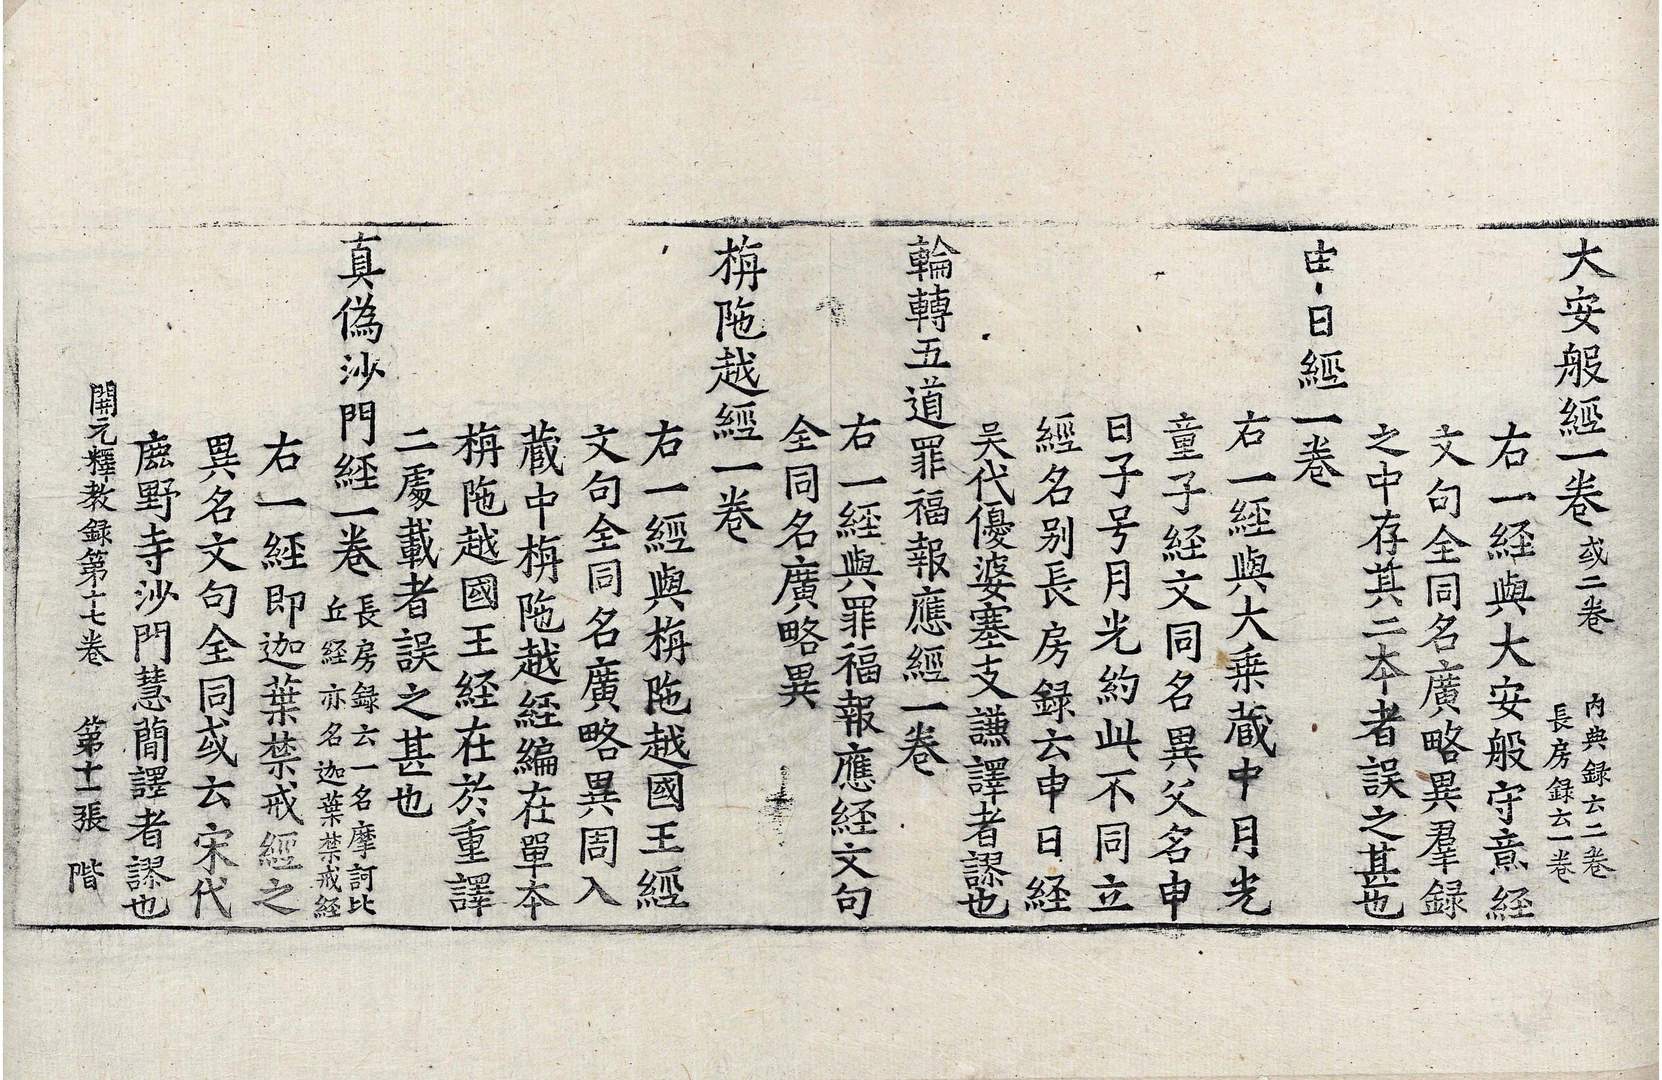 大安般經一卷 或二卷 內典錄云二卷
長房錄云一卷
右一經與大安般守意經
文句全同名廣略異羣録
之中存其二本者誤之甚也
申日經一卷
右一經與大乗蔵中月光
童子経文同名異父名申
日子号月光約此不同立
經名别長房録云申日経
吴代優婆塞支謙譯者謬也
輪轉五道罪福報應經一卷
右一經與罪福報應経文句
全同名廣略異
栴陁越經一卷
右一經與栴陁越國王經
文句全同名廣略異周入
蔵中栴陁越経編在單本
栴陁越國王経在於重譯
二處載者誤之甚也
真偽沙門経一卷 長房録云一名摩訶比
丘経亦名迦葉禁戒経
右一經即迦葉禁戒經之
異名文句全同或云宋代
鹿野寺沙門慧簡譯者謬也
開元釋教録第十七卷 第十一張 階